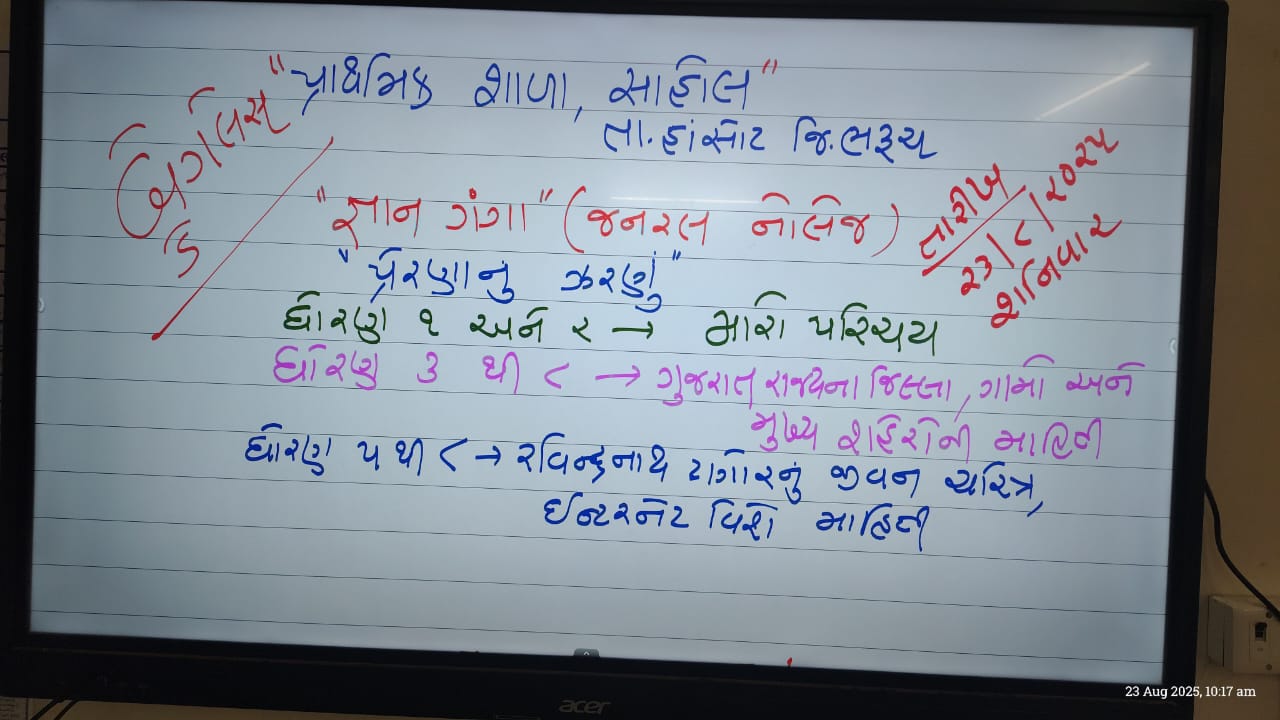 "પ્રાથમિક શાળા, સાહોલ"
તા.હાંસોટ જિ.ભરૂચ
બેગલેસ ડે
તારીખ
૨૩/૮/૨૦૨૫
શનિવાર
"જ્ઞાન ગંગા" (જનરલ નોલેજ)
"પ્રેરણાનું ઝરણું"
ધોરણ ૧ અને ૨ → મારો પરિચય
ધોરણ ૩ થી ૮ → ગુજરાત રાજ્યના જિલ્લા, ગામો અને
મુખ્ય શહેરોની માહિતી
ધોરણ ૫ થી ૮ → રવિન્દ્રનાથ ટાગોરનું જીવન ચરિત્ર,
ઈન્ટરનેટ વિશે માહિતી
acer
23 Aug 2025, 10:17 am